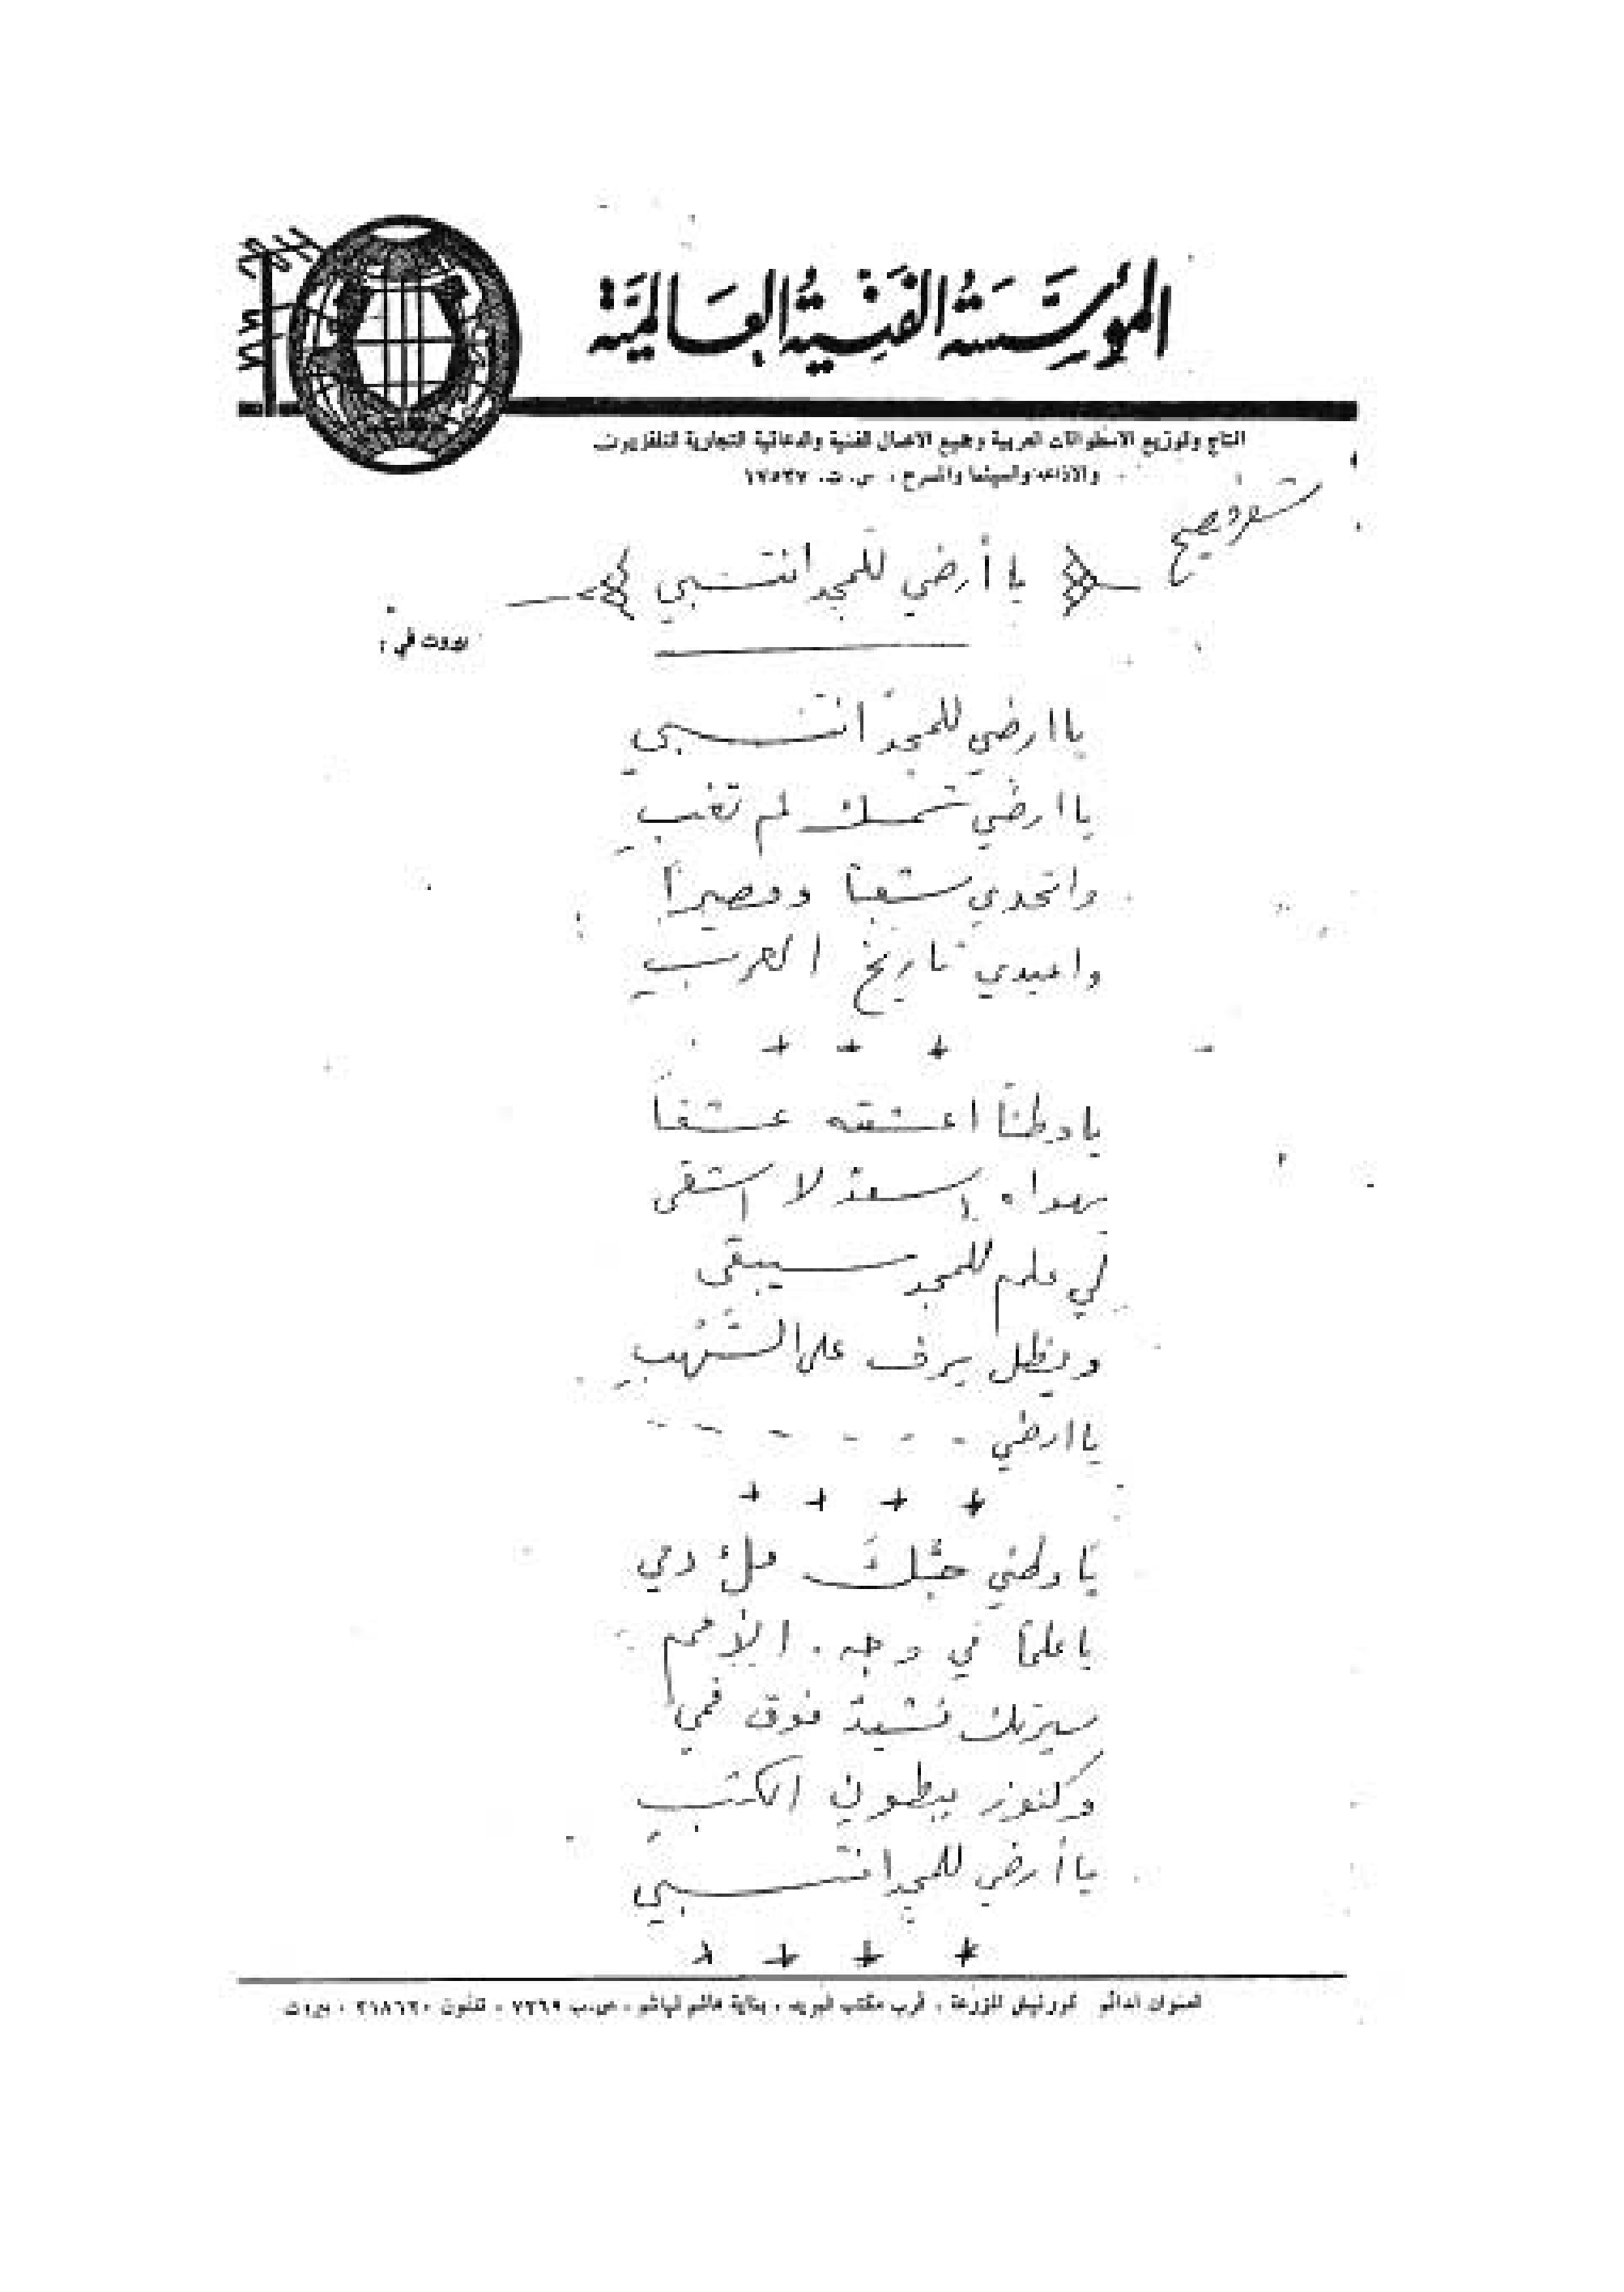 المؤسَّسَةُ الفَنِيَّةُ العَالَمِيَّة
انتاج وتوزيع الاسطوانات العربية وجميع الاعمال الفنية والدعائية التجارية للتلفزيون
والاذاعة والسينما والمسرح ، س. ت. ١٧٥٣٧
شعر فصيح
يا أرضي للمجد انتسبي
بيروت في :
يا ارضي للمجد انتسبي
يا ارضي شمسك لم تغبِ
واتحدي شعباً ومصيراً
واعيدي تاريخ العربِ
+ + +
يا وطناً اعشقه عشقاً
بهواه اسعدُ لا اشقى
لي علم للمجد سيبقى
ويظل يرف على الشُهبِ
يا ارضي - - - - - -
+ + + +
يا وطني حبُّكَ ملءُ دمي
يا علماً في وجه الأمم
سيرتك نشيدٌ فوق فمي
وكنوز ببطون الكتبِ
يا أرضي للمجد انتسبي
+ + + +
العنوان الدائم كورنيش المزرعة ، قرب مكتب البريد ، بناية هاشم ، ص.ب ٧٣٦٩ ، تلفون ٣١٨٦٣٠ ، بيروت